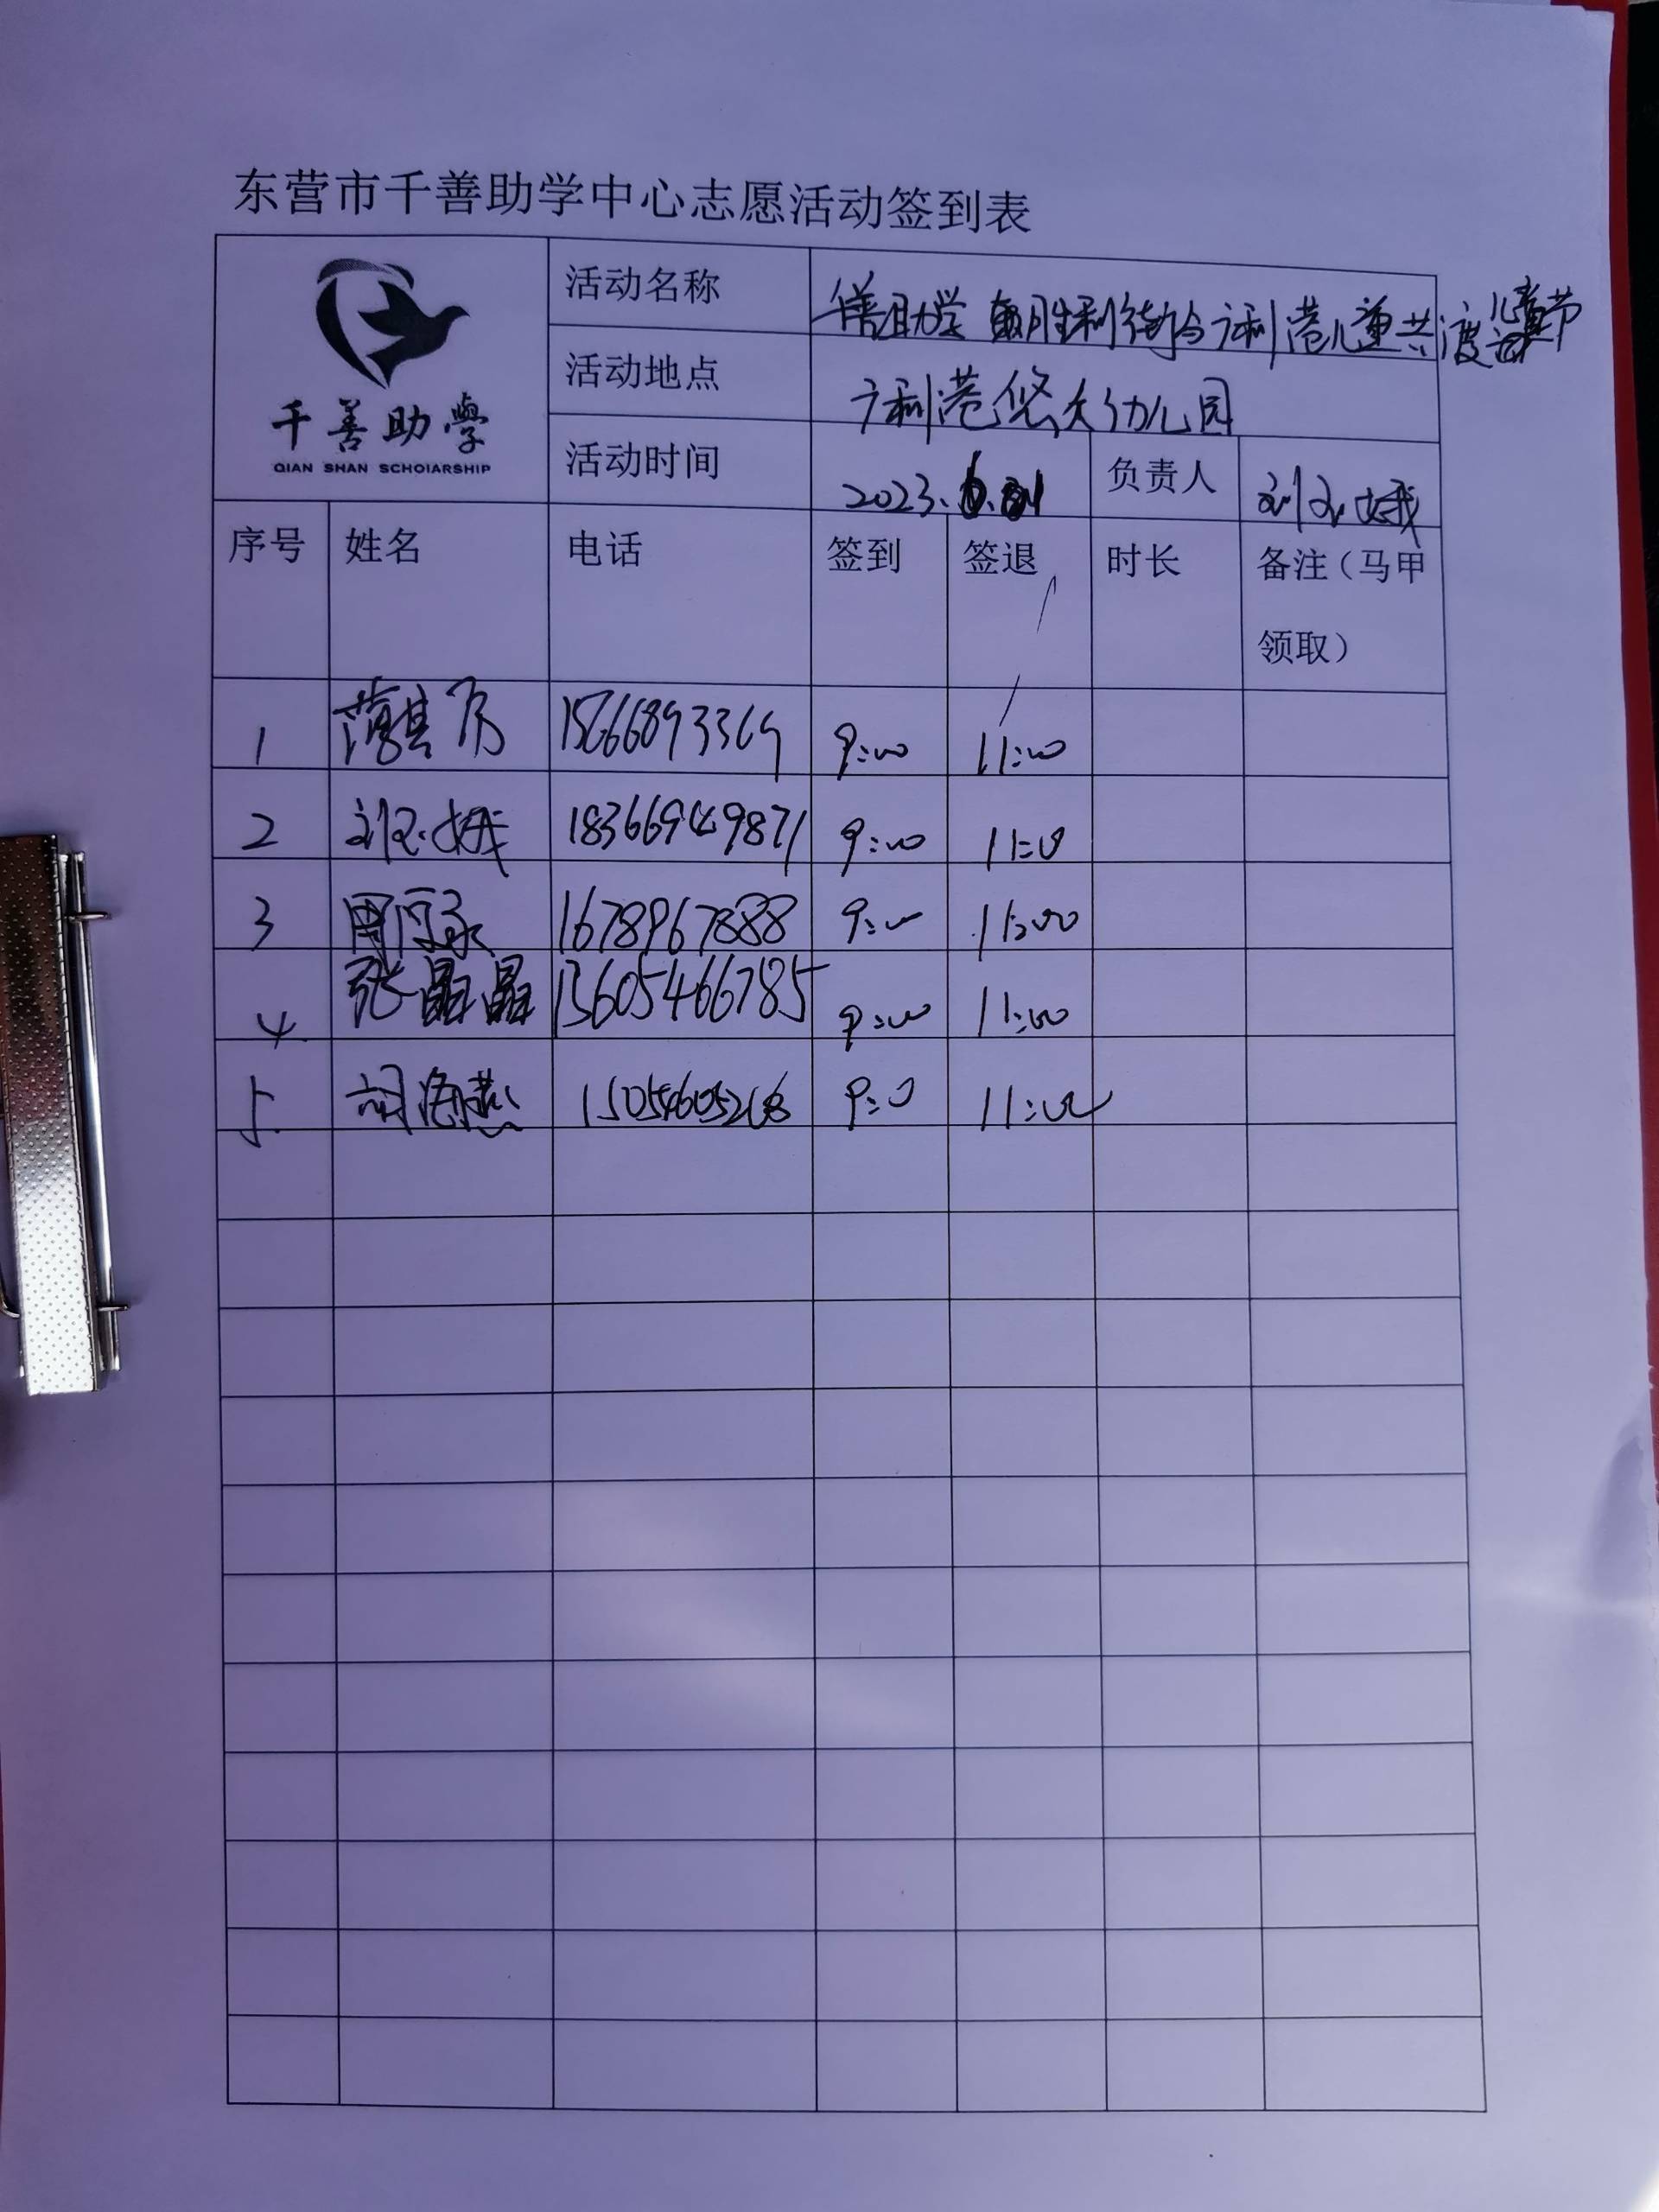 东营市千善助学中心志愿活动签到表
千善助學
QIAN SHAN SCHOIARSHIP
活动名称 千善助学 胜利街 广利港儿童共渡儿童节
活动地点 广利港悠久幼儿园
活动时间 2023.6. 负责人 刘玉娥
序号 姓名 电话 签到 签退 时长 备注（马甲
领取）
1 9:00 11:00
2 刘玉娥 18366949871 9:00 11:00
3 1678967888 9:00 11:00
4 张晶晶 13605466785 9:00 11:00
5 胡海燕 9:0 11:00